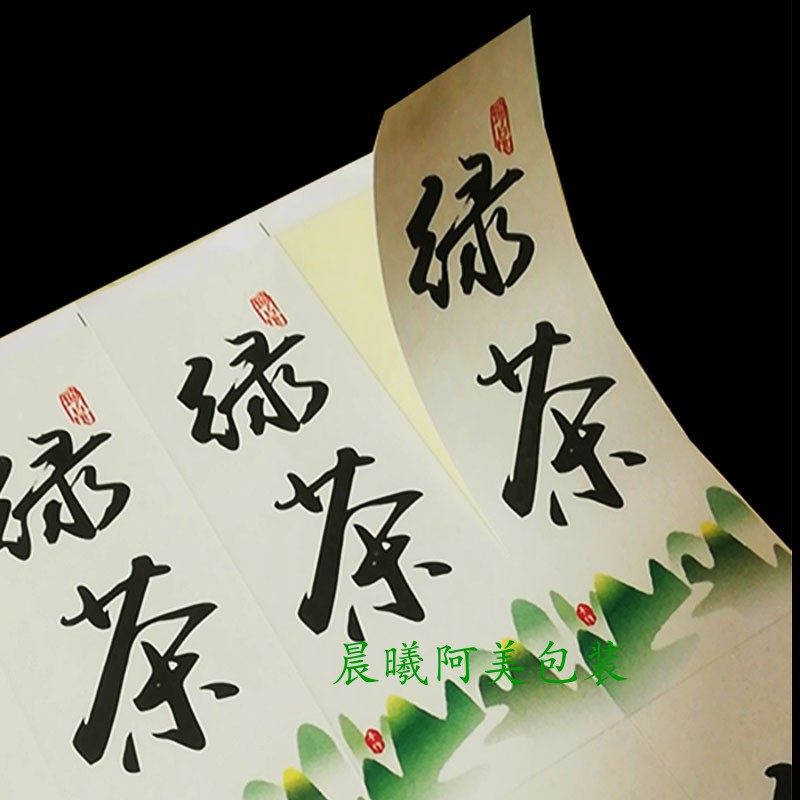 绿茶
绿茶
绿茶
晨曦阿美包装